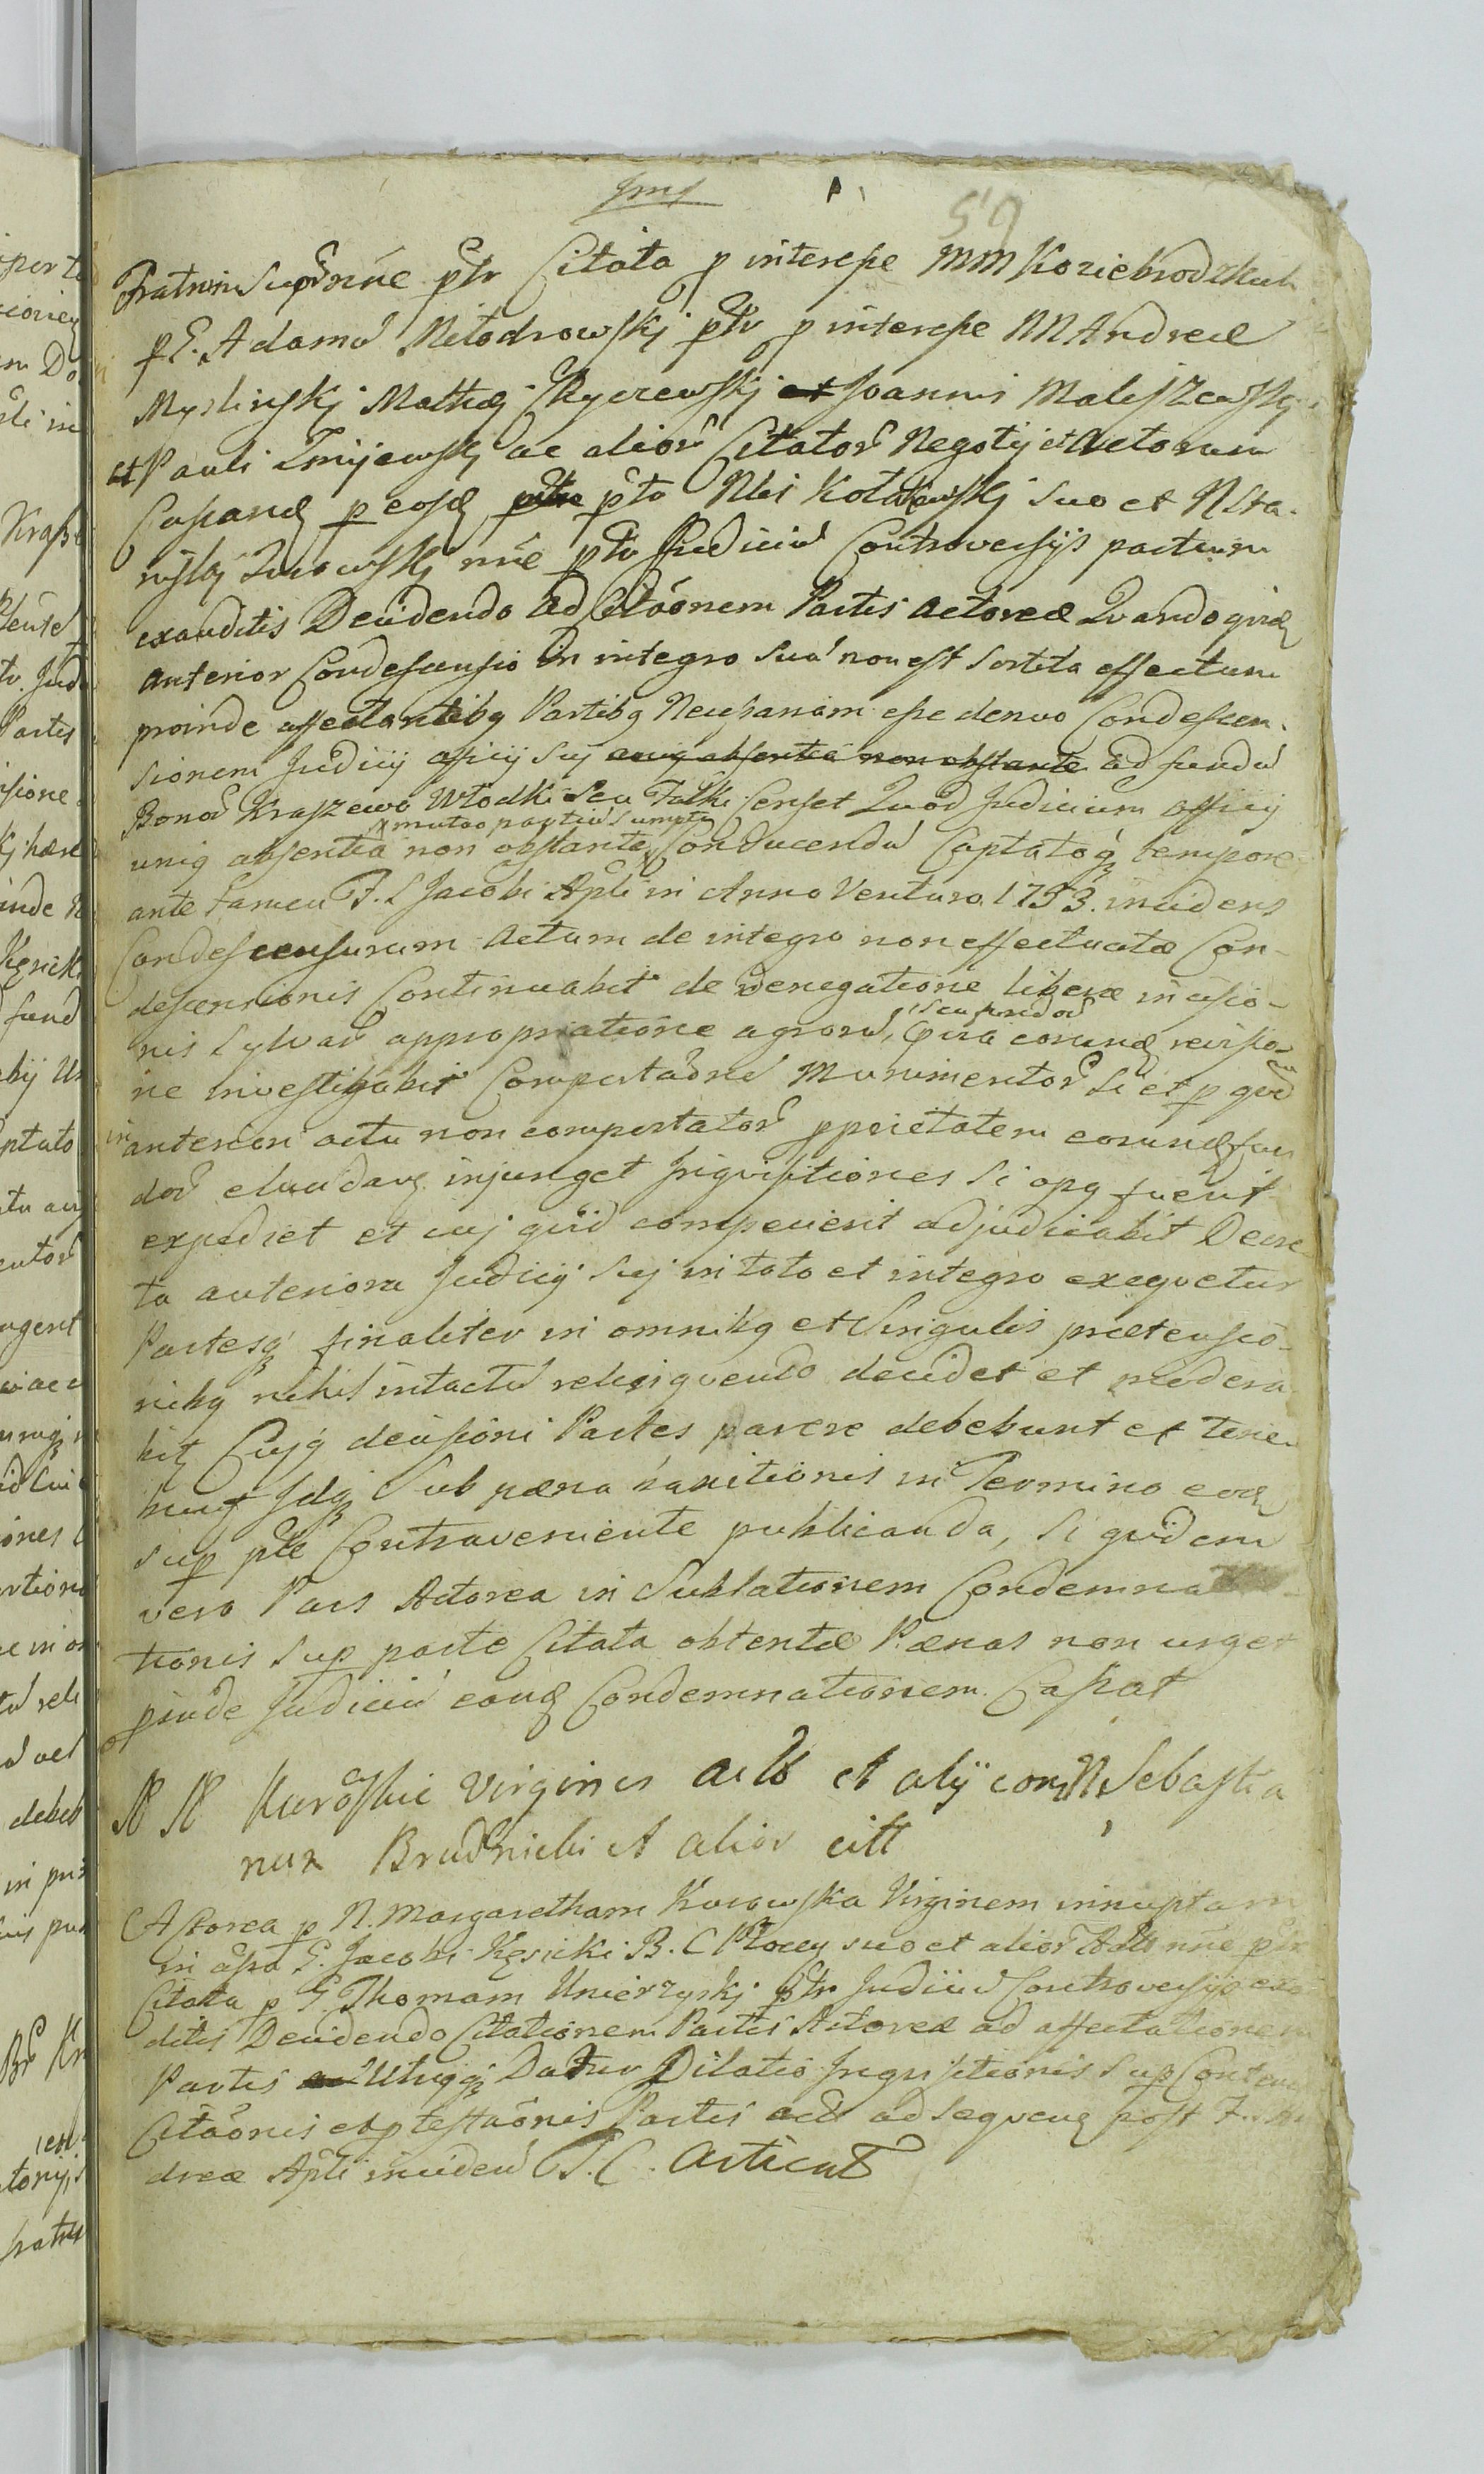 59
Fratrem Suo nne ptr Citata p interesse MM Koziebrodzkich
p G. Adamu Młodrowskj ptr p interesse NN Andreæ
Myslinskj Mathæj Ryczewskj et Joannis Maleszewskj
et Pauli Zmijewskj ac alior Citator Negotij et Actorum
Cassand p eosd ptr Nlis Kołakowskj suo et N Sta-
nislaj Zurowskj nne ptr Judiciu Controversijs partium
exauditis Decidendo ad Citaonem Partis Actoreæ Quandoquid
anterior Condescensio in integro suu non est sortita effectum
proinde affectantibq Partibq Necessariam esse denuo Condescen-
sionem Judicij officij sui unig absentia non obstante ad fundu
Bonor Kraszewo Włodki Seu Falki Censet Quod Judicium officij
x mutuo partiu Sumptu
unig absentia non obstante x Conducendu Captatoq tempore
ante tamen F. S Jacobi Apli in Anno Venturo 1753. incidens
Condescensurum Actum de integro non effectuatæ Con-
descensionis Continuabit de denegatione liberæ incisio-
nis Sylvar appropriatione agroru, seu fundor circa eorund revisio-
ne investigabit Comportaone Munimentor Si et p quid
in anteriori actu non comportator pprietatem eorund fun
dor elucidand injunget Inquisitiones Si opq fuerit
expediet et cuj quid competierit adjudicabit Decre
ta anteriora Judicij Suj in toto et integro exequetur
Partesq finaliter in omnibq et Singulis prætensio-
nibq nihil intactu relinquendo decidet et modera
bit Cujq decisioni Partes parere debebunt et tene
bunt Idq Sub pæna banitionis in Termino eod
sup pte Contraveniente publicanda, Siquidem
vero Pars Actorea in Sublationem Condemna
tionis Sup parte Citata obtentæ Pænas non urget
pinde Judiciu eand Condemnationem Cassat
N N Kurowskie Virgines Acto et alij con N Sebastia
num Brudnicki et alios citt
Actorea p N. Margaretham Kurowska Virginem innuptam
in assa G. Jacobi Kęsicki B. C Płocen suo et alior Actt nne ptr
Citata p G. Thomam Unierzyskj ptr Judiciu Controversijs exau
ditis Decidendo Citationem Partis Actoreæ ad affectationem
Partis Utriqq Datur Dilatio Inquisitionis Sup Conten
Citaonis et ptestaonis Partis acto ad sequend post F. S. An
dreæ Apli inciden T. C. Articul